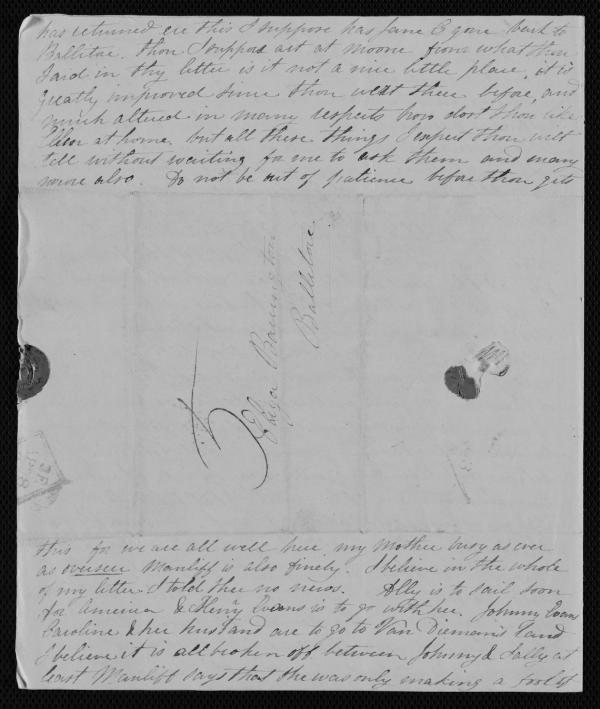 has returned ere this I suppose has Jane C gone back to
Ballitore. thou I suppose art at moone from what thou
said in thy letter is it not a nice little place, it is
greatly improved since thou wert there before, and
much altered in many respects how dost thou like
Ellen at home. but all these things I expect thou wilt
tell without waiting for me to ask them and many
more also. Do not be out of patience before thou gets
Eliza
Ballitore.
5
this for we are all well here my mother busy as ever
as overseer Manliff is also finely. I believe in the whole
of my letter I told thee no news. Ally is to sail soon
for America & Henry Evans is to go with her. Johnny Evans
Caroline & her husband are to go to Van Dieman's Land
I believe it is all broken off between Johnny & Sally at
least Manliff says that she was only making a fool of